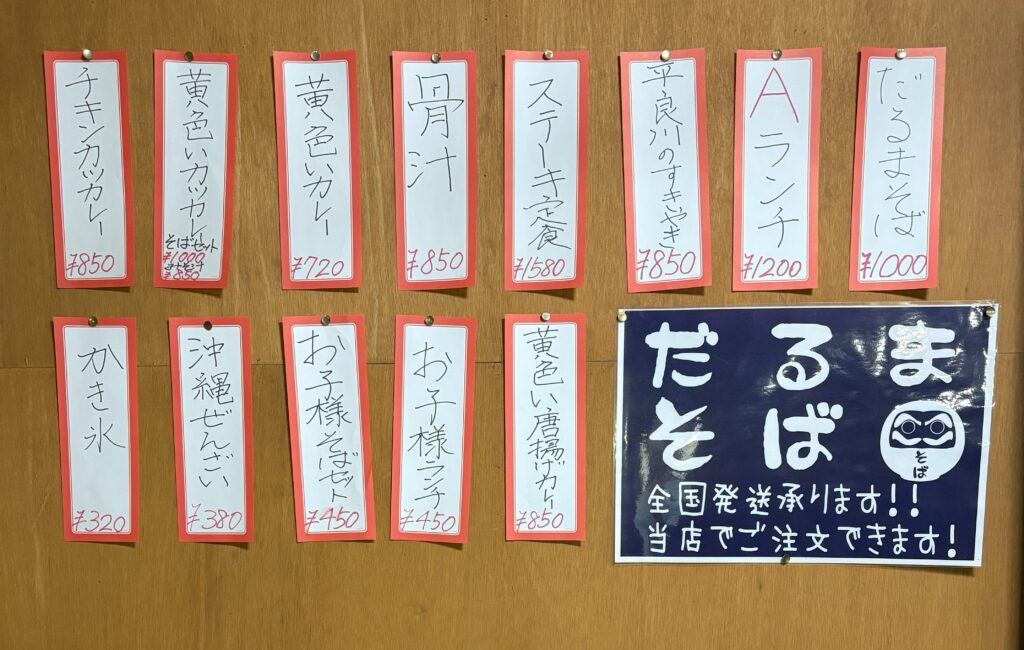 だるまそば
¥1000
Aランチ
¥1200
平良川のすきやき
¥850
ステーキ定食
¥1580
骨汁
¥850
黄色いカレー
¥720
黄色いカツカレー
そばセット
¥1000
¥850
チキンカツカレー
¥850
だるま
そば
そば
全国発送承ります!!
当店でご注文できます!
黄色い唐揚げカレー
¥850
お子様ランチ
¥450
お子様そばセット
¥450
沖縄ぜんざい
¥380
かき氷
¥320